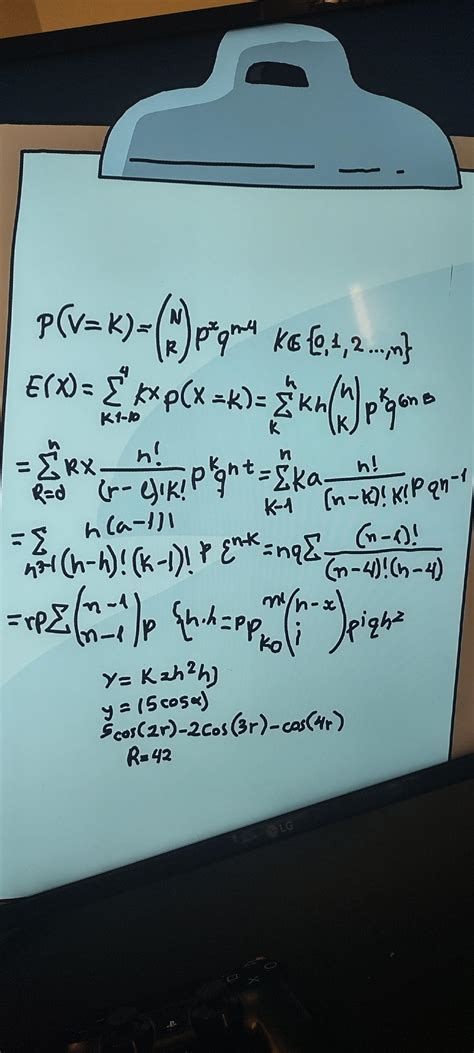 P(V=K)=(N R)p^x q^n-4 K∈{0,1,2...,n}
E(X)=Σ^4_K1-10 K× p(X=k)=Σ^n_K Kh(n K)p^K q^6n8
=Σ^n_R=0 R× n!/(r-c)!K! p^k q^nt=Σ^n_K-1 Ka n!/[n-K)!K! p qn-1
=Σ_n=1 n(a-1)!/(h-h)!(k-1)! p ε^n-K=nqΣ (n-1)!/(n-4)!(h-4)
=rpΣ(n-1 n-1)p {h.h=pp^m_K0(n-x i)p^i q h^2
Y=K=h²h)
y=(5cosα)
5cos(2r)-2cos(3r)-cos(4r)
R=42
LG